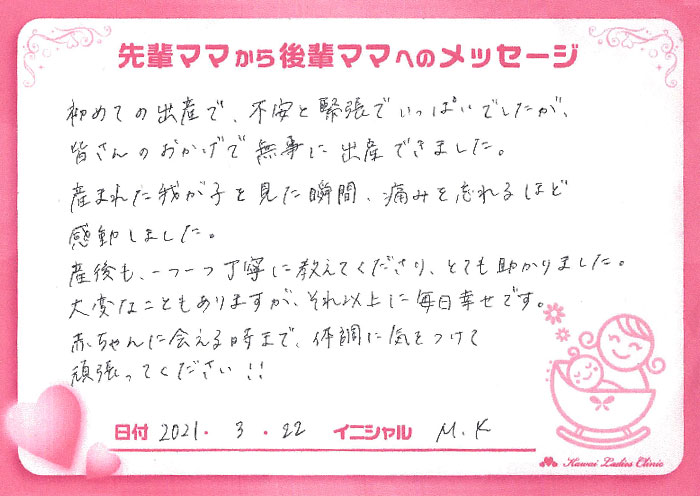 先輩ママから後輩ママへのメッセージ
初めての出産で、不安と緊張でいっぱいでしたが、
皆さんのおかげで無事に出産できました。
産まれた我が子を見た瞬間、痛みを忘れるほど
感動しました。
産後も、一つ一つ丁寧に教えてくださり、とても助かりました。
大変なこともありますが、それ以上に毎日幸せです。
赤ちゃんに会える時まで、体調に気をつけて
頑張ってください!!
日付 2021. 3 . 22 イニシャル M.K
Kawai Ladies Clinic